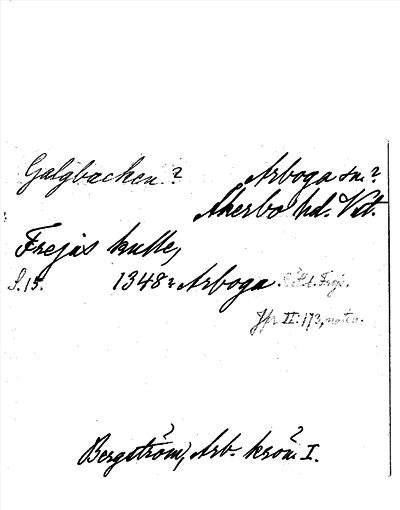 Galgbacken? Arboga sn.?
Åkerbo hd. Vst.
Frejas kulle,
S. 15. 1348: Arboga
Jfr II: 173, not n.
Bergström, Arb. krön. I.